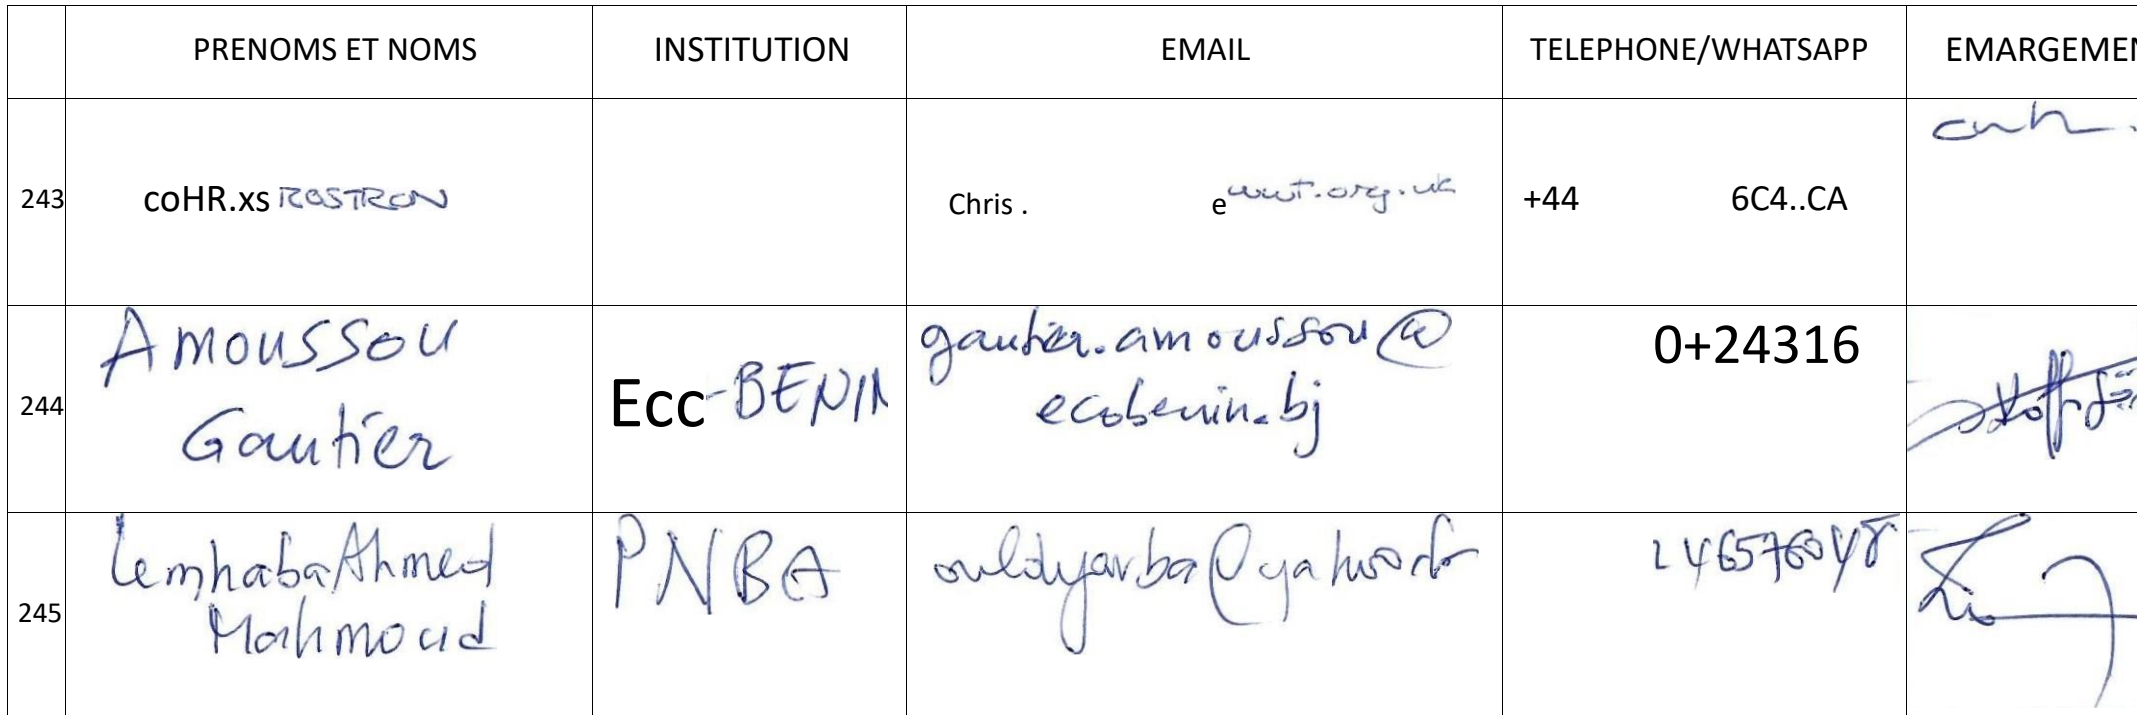 PRENOMS ET NOMS INSTITUTION EMAIL TELEPHONE/WHATSAPP EMARGEMEN
243 coHR.xs ROSTRON Chris . e wwt.org.uk +44 6C4..CA
244 Amoussou Gautier Ecc-BENIN gautier.amoussou@ecobenin.bj 0+24316
245 Lemhaba Ahmed Mahmoud PNBA